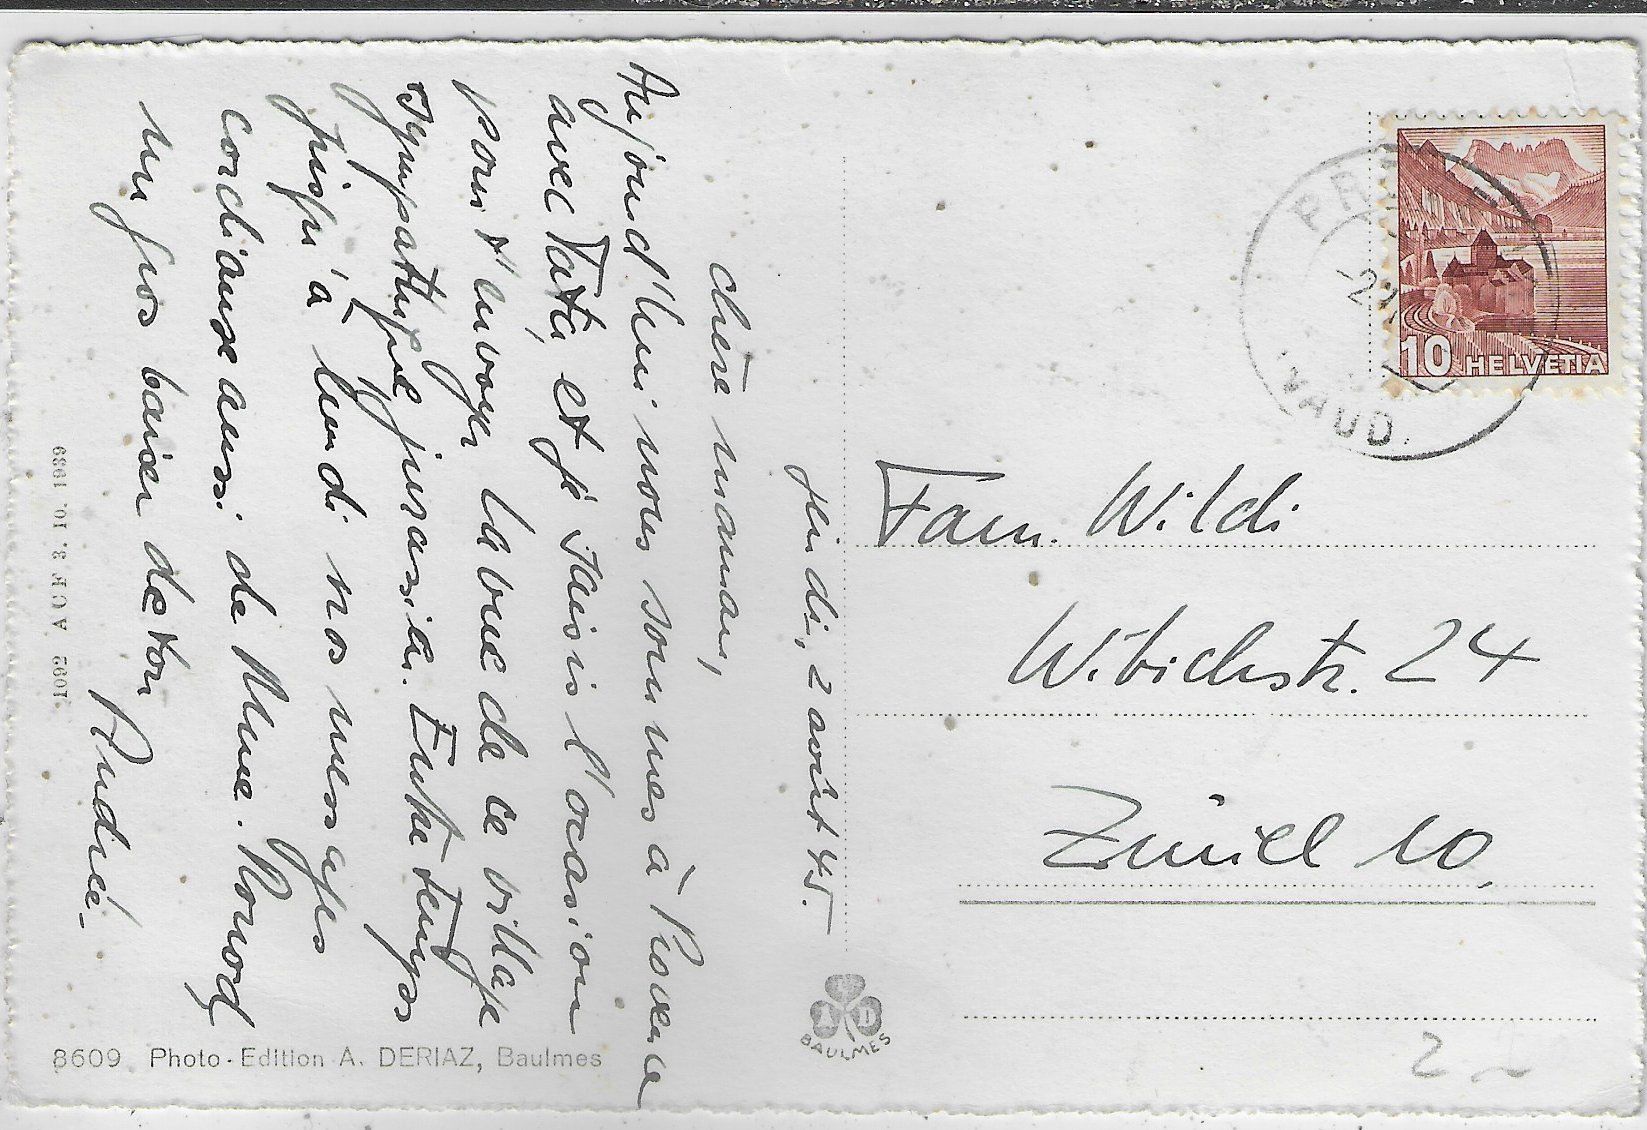 jeudi, 2 août 45.
chère maman,
Aujourd'hui nous sommes à Provence
avec Tata, et je saisis l'occasion
pour t'envoyer la vue de ce village
sympathique jurassien. Entre temps
jusqu'à lundi nos messages
cordiaux aussi de Mme. Ronod
un gros baiser de ton
Ruedi.
1092 ACF 3. 10. 1939
8609 Photo-Edition A. DERIAZ, Baulmes
A D
BAULMES
10 HELVETIA
VAUD.
Fam. Wildi
Wibichstr. 24
Zürich 10.
2.-